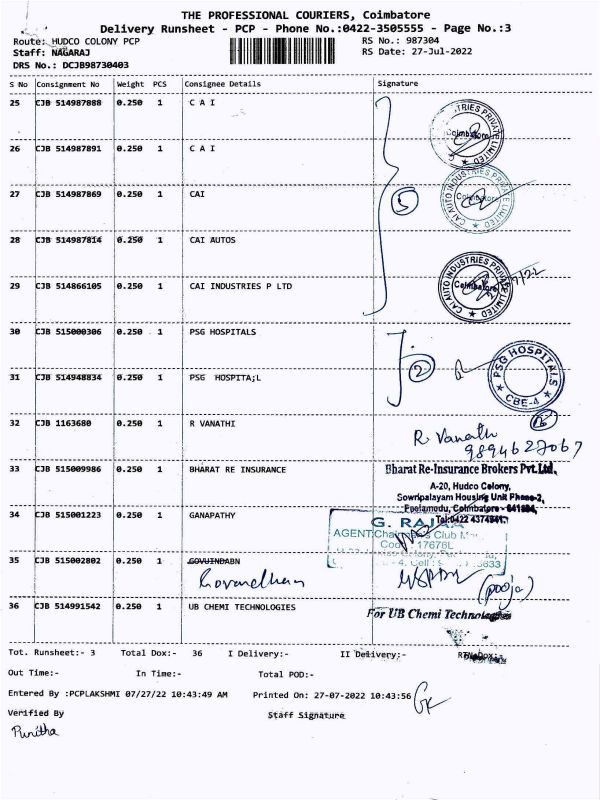 THE PROFESSIONAL COURIERS, Coimbatore
Delivery Runsheet - PCP - Phone No.:0422-3505555 - Page No.:3
Route: HUDCO COLONY PCP
RS No.: 987304
Staff: NAGARAJ
RS Date: 27-Jul-2022
DRS No.: DCJB98730403
S No Consignment No Weight PCS Consignee Details Signature
25 CJB 514987888 0.250 1 C A I
26 CJB 514987891 0.250 1 C A I
27 CJB 514987869 0.250 1 CAI
28 CJB 514987814 0.250 1 CAI AUTOS
29 CJB 514866105 0.250 1 CAI INDUSTRIES P LTD
5
TRIES PRIVATE LIMITED
Coimbatore
CAI AUTO INDUSTRIES PRIVATE LIMITED
Coimbatore
CAI AUTO INDUSTRIES PRIVATE LIMITED
Coimbatore
7/22
30 CJB 515000306 0.250 1 PSG HOSPITALS
31 CJB 514948834 0.250 1 PSG HOSPITA;L
2
PSG HOSPITALS
CBE-4
32 CJB 1163680 0.250 1 R VANATHI
R Vanathi
9894627067
33 CJB 515009986 0.250 1 BHARAT RE INSURANCE
Bharat Re-Insurance Brokers Pvt.Ltd.
A-20, Hudco Colony,
Sowripalayam Housing Unit Phase-2,
Peelamedu, Coimbatore - 641004,
34 CJB 515001223 0.250 1 GANAPATHY
Tel:0422 4374341
G. RAJA
AGENT
Club
Code 17676L
35 CJB 515002802 0.250 1 GOVUINDABN
Govardhan
(pooja)
36 CJB 514991542 0.250 1 UB CHEMI TECHNOLOGIES
For UB Chemi Technologies
Tot. Runsheet:- 3 Total Dox:- 36 I Delivery:- II Delivery:-
Out Time:- In Time:- Total POD:-
Entered By :PCPLAKSHMI 07/27/22 10:43:49 AM Printed On: 27-07-2022 10:43:56
Verified By
Staff Signature
Punitha